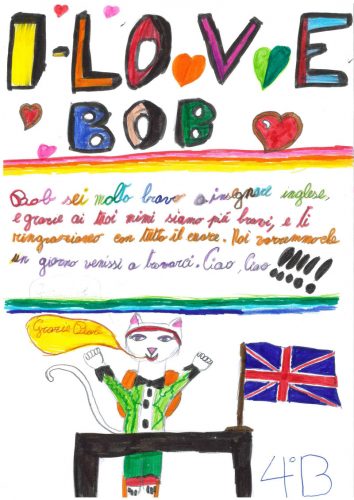 I-LOVE
BOB
Bob sei molto bravo a insegnare inglese,
e grazie ai tuoi mimi siamo più bravi, e ti
ringraziamo con tutto il cuore. Noi vorremmo che
un giorno venissi a trovarci. Ciao, Ciao !!!!!
Grazie
4°B